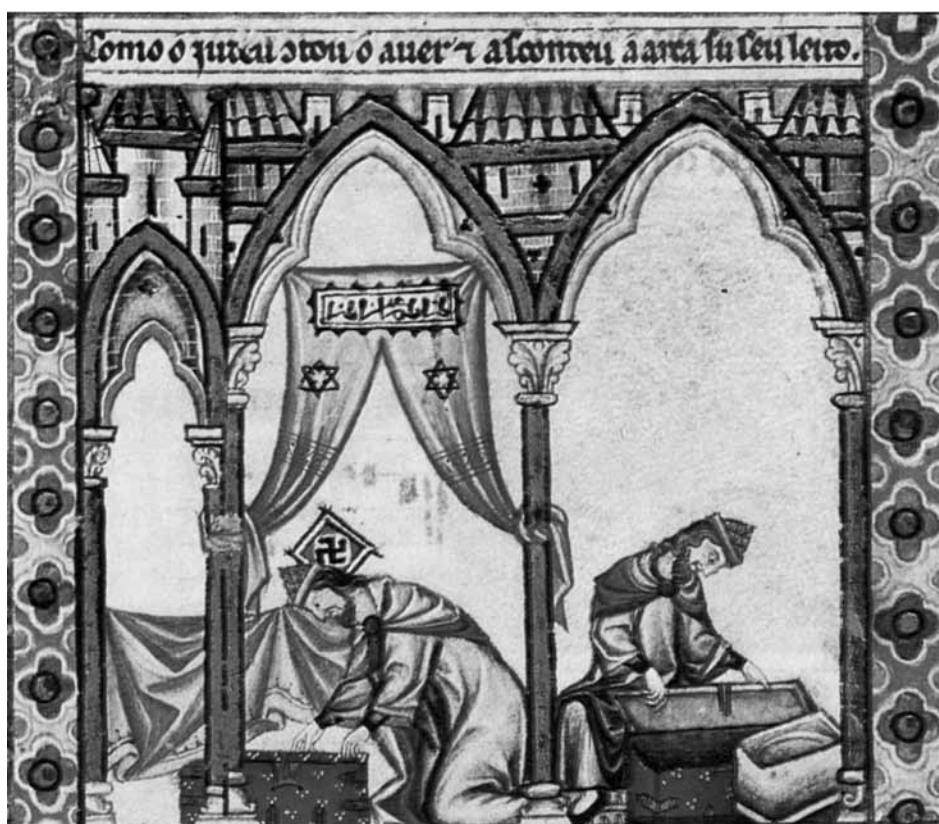 Como ó judeu ↄtou ó auer ⁊ ascondeu a arca su seu leito.